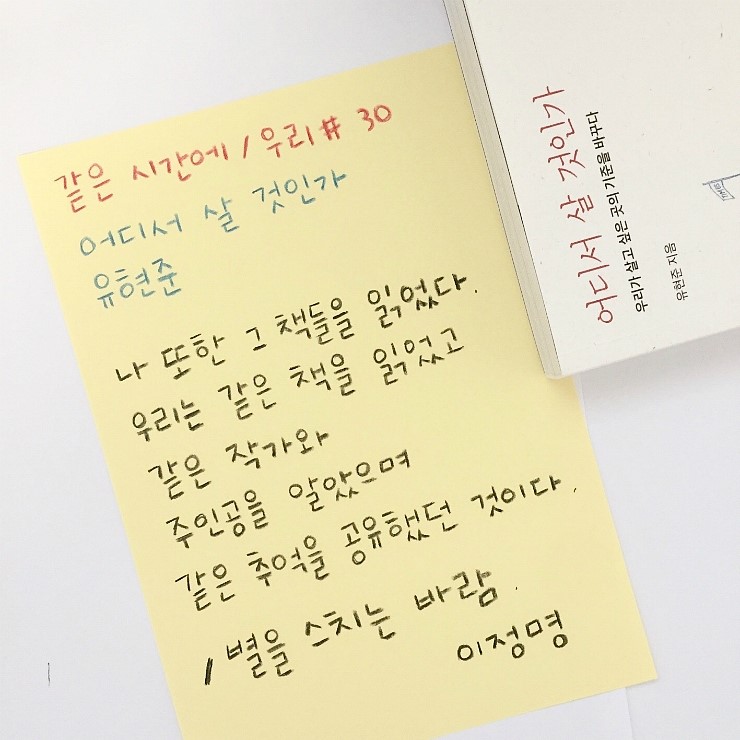 같은 시간에 / 우리 # 30
어디서 살 것인가
유현준
나 또한 그 책들을 읽었다.
우리는 같은 책을 읽었고
같은 작가와
주인공을 알았으며
같은 추억을 공유했던 것이다.
/ 별을 스치는 바람.
이정명
어디서 살 것인가
우리가 살고 싶은 곳의 기준을 바꾸다
유현준 지음